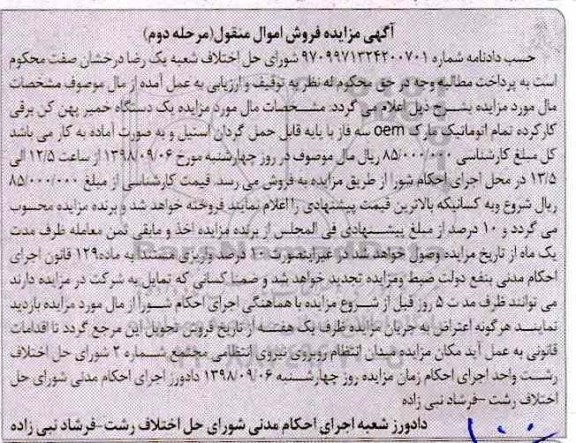 آگهی مزایده فروش اموال منقول(مرحله دوم)
حسب دادنامه شماره ۹۷۰۹۹۷۱۳۲۴۲۰۰۷۰۱ شورای حل اختلاف شعبه یک رضا درخشان صفت محکوم
است به پرداخت مطالبه وجه در حق محکوم له نظر به توقیف و ارزیابی به عمل آمده از مال موصوف مشخصات
مال مورد مزایده بشرح ذیل اعلام می گردد. مشخصات مال مورد مزایده یک دستگاه خمیر پهن کن برقی
کارکرده تمام اتوماتیک مارک oem سه فاز با پایه قابل حمل گردان استیل و به صورت آماده به کار می باشد
کل مبلغ کارشناسی ۸۵/۰۰۰/۰۰۰ ریال مال موصوف در روز چهارشنبه مورخ ۱۳۹۸/۰۹/۰۶ از ساعت ۱۲/۵ الی
۱۳/۵ در محل اجرای احکام شورا از طریق مزایده به فروش می رسد. قیمت کارشناسی از مبلغ ۸۵/۰۰۰/۰۰۰
ریال شروع وبه کسانیکه بالاترین قیمت پیشنهادی را اعلام نمایند فروخته خواهد شد و برنده مزایده محسوب
می گردد و ۱۰ درصد از مبلغ پیشنهادی فی المجلس از برنده مزایده اخذ و مابقی ثمن معامله ظرف مدت
یک ماه از تاریخ مزایده وصول خواهد شد در غیراینصورت ۱۰ درصد واریزی مستندا به ماده۱۲۹ قانون اجرای
احکام مدنی بنفع دولت ضبط ومزایده تجدید خواهد شد و ضمنا کسانی که تمایل به شرکت در مزایده دارند
می توانند ظرف مدت ۵ روز قبل از شروع مزایده با هماهنگی اجرای احکام شورا از مال مورد مزایده بازدید
نمایند هرگونه اعتراض به جریان مزایده ظرف یک هفته از تاریخ فروش تحویل این مرجع گردد تا اقدامات
قانونی به عمل آید مکان مزایده میدان انتظام روبروی نیروی انتظامی مجتمع شماره ۲ شورای حل اختلاف
رشت واحد اجرای احکام زمان مزایده روز چهارشنبه ۱۳۹۸/۰۹/۰۶ دادورز اجرای احکام مدنی شورای حل
اختلاف رشت –فرشاد نبی زاده
دادورز شعبه اجرای احکام مدنی شورای حل اختلاف رشت-فرشاد نبی زاده